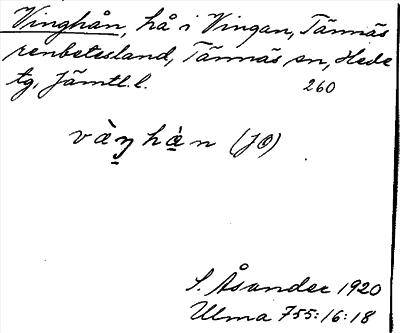 Vinghån, hå i Vingan, Tännäs
renbetesland, Tännäs sn, Hede
tg, Jämtl. l.
260
và̀ŋhạ̀n (JØ)
S. Åsander 1920
Ulma 755:16:18